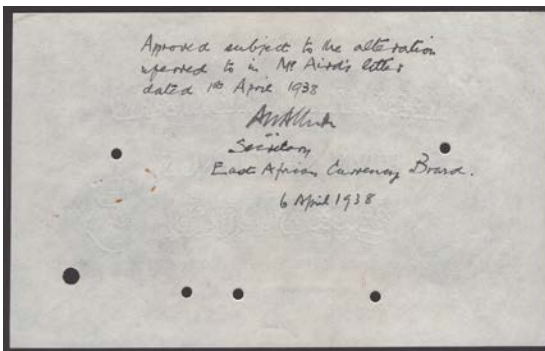 Approved subject to the alteration
referred to in Mr Aird's letter
dated 1st April 1938
Secretary
East African Currency Board.
6 April 1938